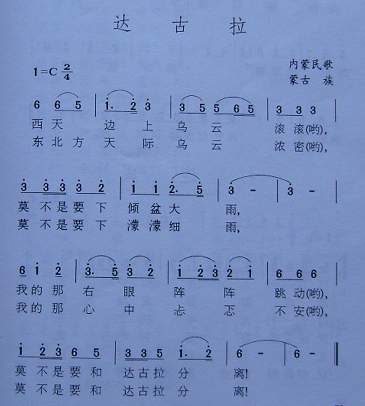 达 古 拉
内蒙民歌
1=C 2/4
蒙古 族
6 6 5 | 1. 2 3 | 3 5 5 6 5 | 3 3 3 |
西 天 边 上 乌 云 滚 滚(哟),
东 北 方 天 际 乌 云 浓 密(哟),
3 3 3 3 2 | 1 1 2. 5 | 3 - | 3 - |
莫 不 是 要 下 倾 盆 大 雨,
莫 不 是 要 下 濛 濛 细 雨,
6 1 2 | 3. 5 3 2 | 1 2 3 1 | 6 6 6 |
我 的 那 右 眼 阵 阵 跳 动(哟),
我 的 那 心 中 忐 忑 不 安(哟),
1 2 3 6 5 | 3 3 5 5 | 1. 2 | 6 - | 6 - ‖
莫 不 是 要 和 达 古 拉 分 离!
莫 不 是 要 和 达 古 拉 分 离!